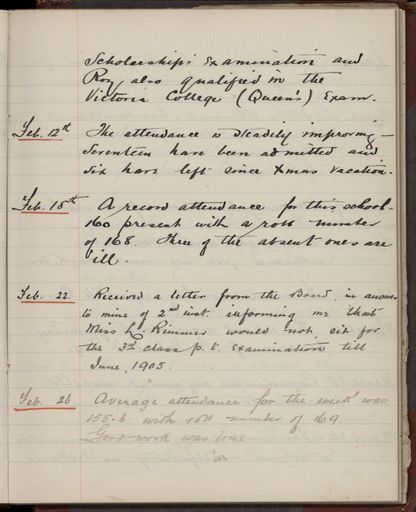 Scholarships Examination and
Roy, also qualified in the
Victoria College (Queen's) Exam.
Feb. 12th The attendance is steadily improving –
Seventeen have been admitted and
six have left since Xmas vacation.
Feb. 18th A record attendance for this school.
160 present with a roll number
of 168. Five of the absent ones are
ill
Feb. 22. Received a letter from the Board, in answer
to mine of 2nd inst. informing me that
Miss L. Rimmer would not sit for
the 3rd class p.t. Examination till
June, 1905.
Feb. 26 Average attendance for the week was
155.6 with roll number of 169
Good work was done